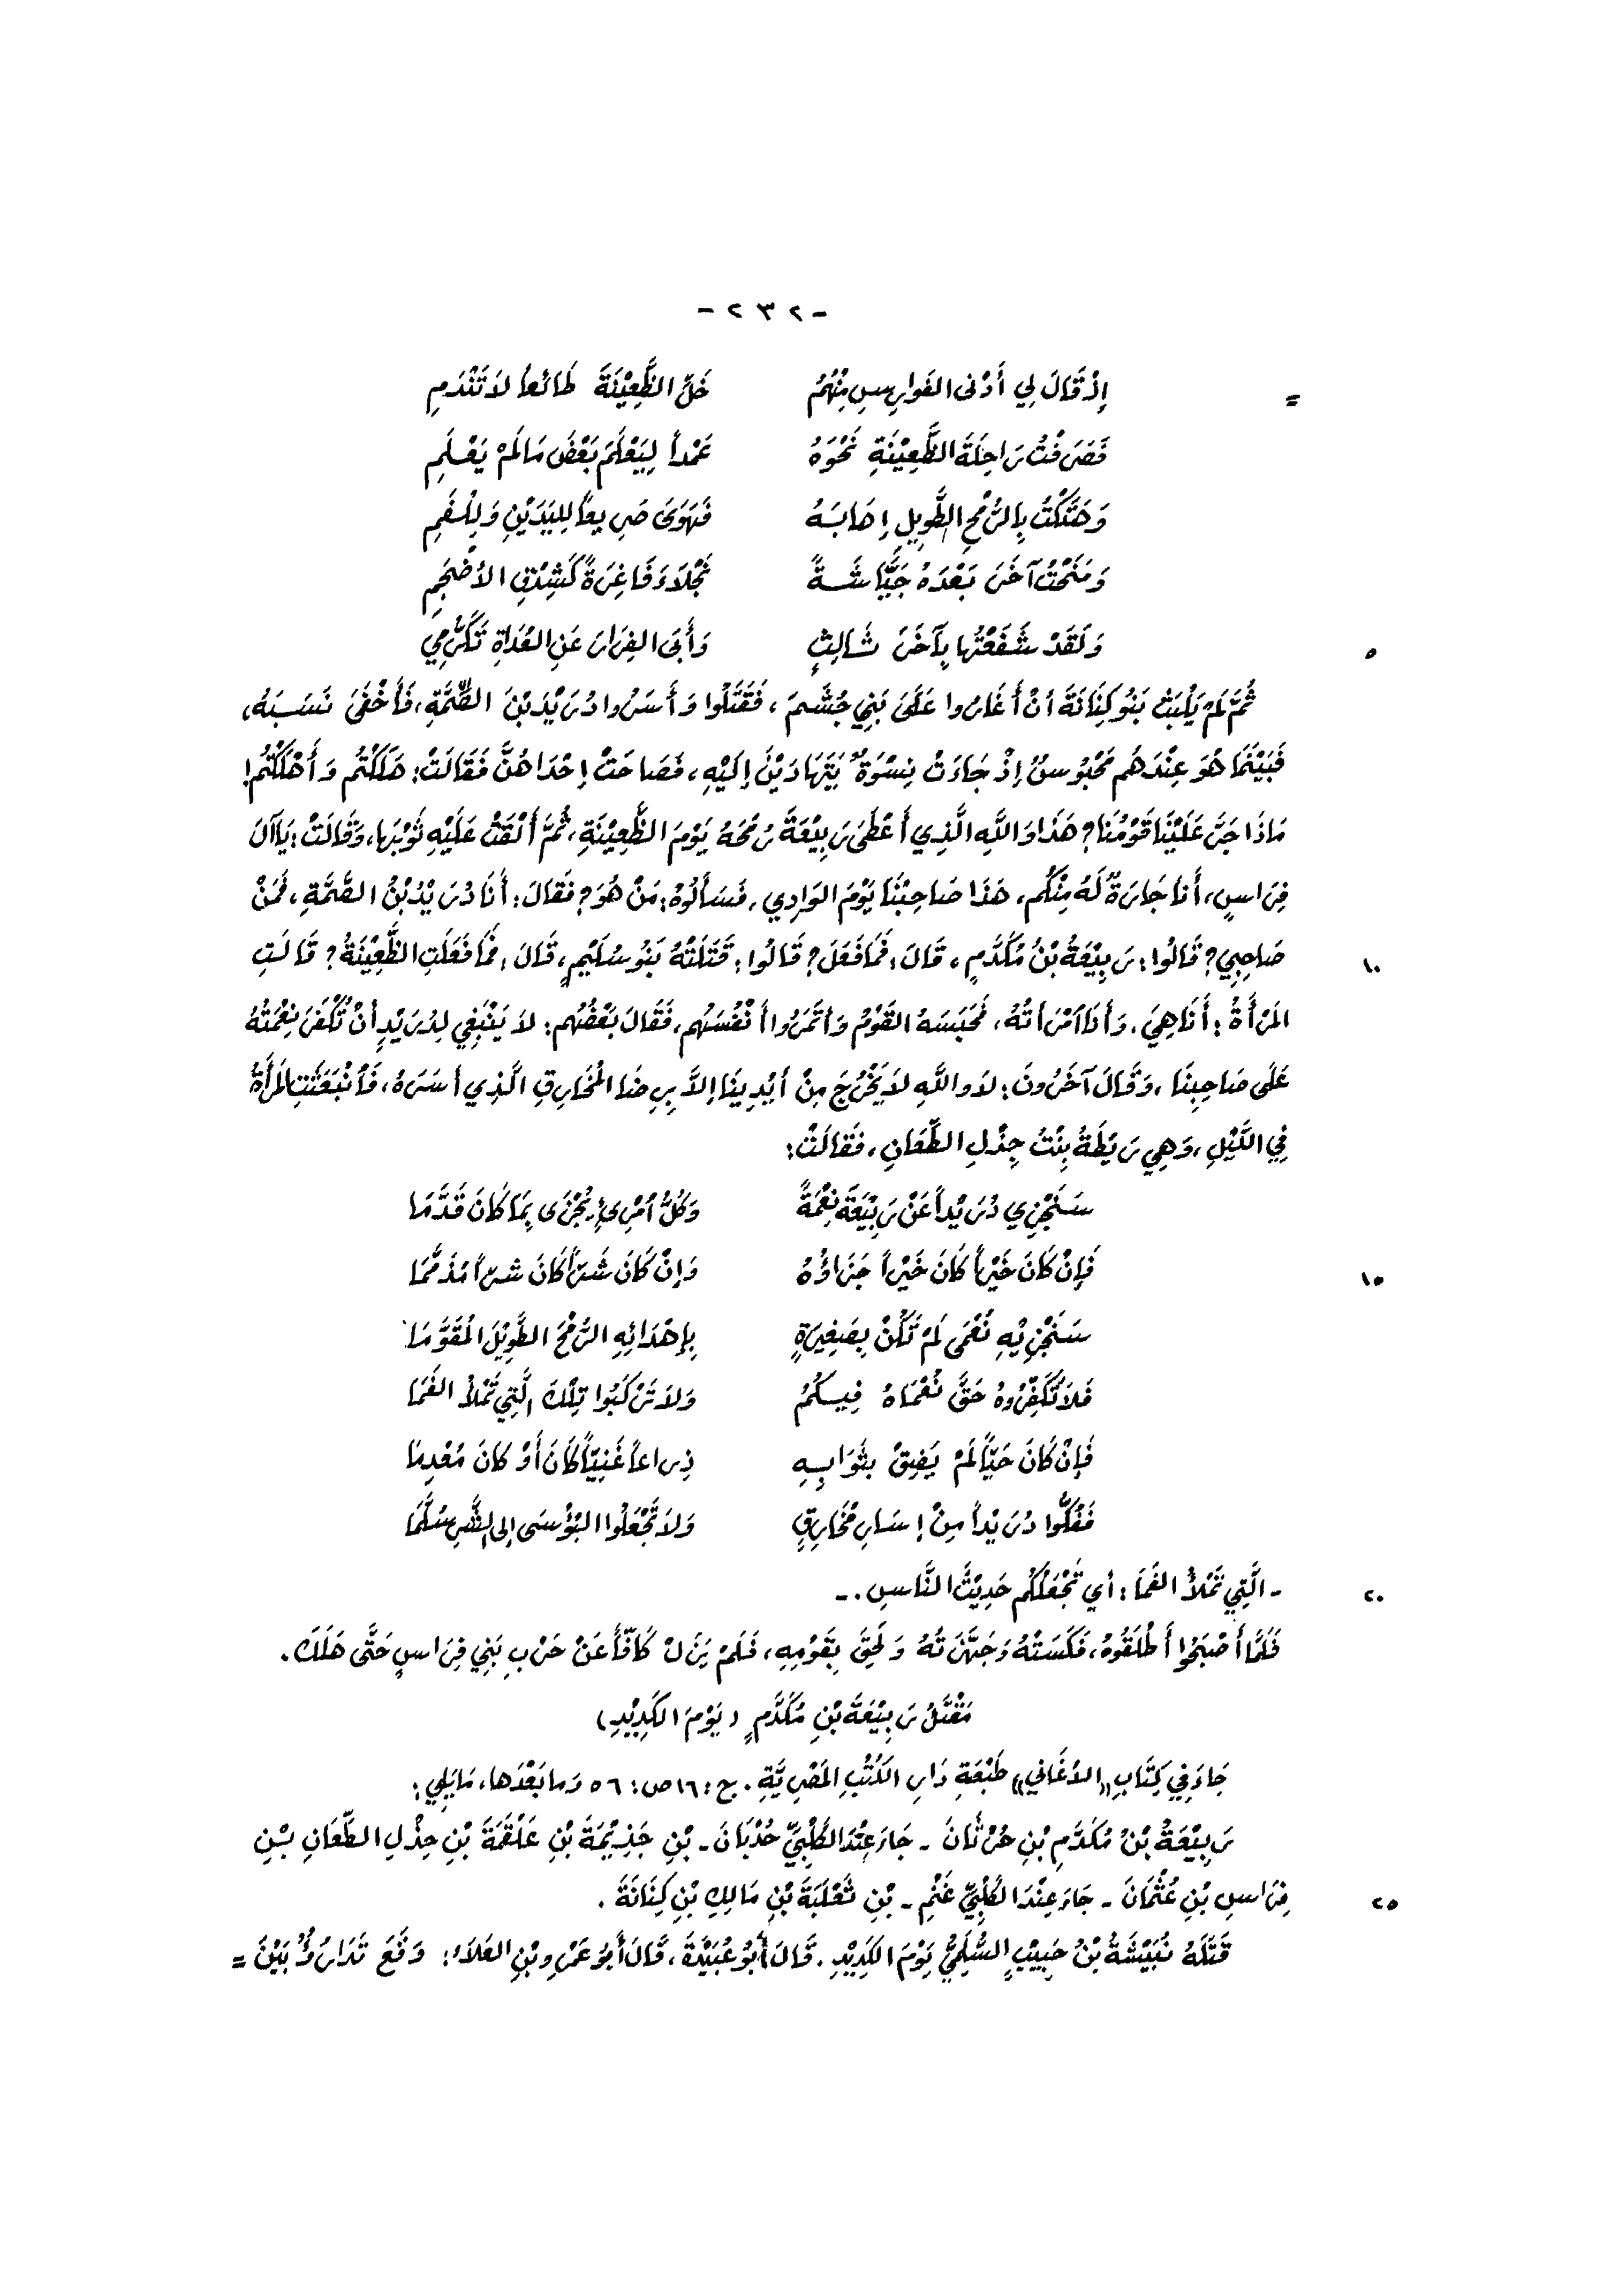 -٢٣٢-
= إِذْ قَالَ لِي أَدْنَى الفَوارِسِ مِنْهُمُ خَلِّ الظَّعِيْنَةَ طَائعاً لاَ تَنْدَمِ
فَصَرَفْتُ رَاحِلَةَ الظَّعِيْنَةِ نَحْوَهُ عَمْداً لِيَعْلَمَ بَعْضَ مَا لَمْ يَعْلَمِ
وَهَتَكْتُ بِالرُّمْحِ الطَّوِيلِ إِهَابَهُ فَهَوَى صَرِيعاً لِليَدَيْنِ وَلِلْفَمِ
وَمَنَحْتُ آخَرَ بَعْدَهُ جَيَّاشَةً نَجْلاَءَ فَاغِرَةً كَشِدْقِ الأَضْجَمِ
٥ وَلَقَدْ شَفَعْتُهَا بِآخَرَ ثَالِثٍ وَأَبَى الفِرَارَ عَنِ العُدَاةِ تَكَرُّمِي
ثُمَّ لَمْ يَلْبَثْ بَنُو كِنَانَةَ أَنْ أَغَارُوا عَلَى بَنِي جُشَمَ، فَقَتَلُوا وَأَسَرُوا دُرَيْدَ بْنَ الصِّمَّةِ، فَأَخْفَى نَسَبَهُ،
فَبَيْنَمَا هُوَ عِنْدَهُم مَحْبُوسٌ إِذْ جَاءَتْ نِسْوَةٌ يَتَهَادَيْنَ إِلَيْهِ، فَصَاحَتْ إِحْدَاهُنَّ فَقَالَتْ: هَلَكْتُم وَأَهْلَكْتُم!
مَاذَا جَرَّ عَلَيْنَا قَوْمُنَا؟ هَذَا وَاللَّهِ الَّذِي أَعْطَى رَبِيْعَةَ رُمْحَهُ يَوْمَ الظَّعِيْنَةِ، ثُمَّ أَلْقَتْ عَلَيْهِ ثَوْبَها، وَقَالَتْ: يَا آلَ
فِرَاسٍ، أَنَا جَارَةٌ لَهُ مِنْكُم، هَذَا صَاحِبُنَا يَوْمَ الوَادِي، فَسَأَلُوهُ: مَنْ هُوَ؟ فَقَالَ: أَنَا دُرَيْدُ بْنُ الصِّمَّةِ، فَمَنْ
١٠ صَاحِبِي؟ قَالُوا: رَبِيْعَةُ بْنُ مُكَدَّمٍ، قَالَ: فَمَا فَعَلَ؟ قَالُوا: قَتَلَتْهُ بَنُو سُلَيْمٍ، قَالَ: فَمَا فَعَلَتِ الظَّعِيْنَةُ؟ قَالَتِ
المَرْأَةُ: أَنَا هِيَ، وَأَنَا امْرَأَتُهُ، فَحَبَسَهُ القَوْمُ وَاتَمَرُوا أَنْفُسَهُم، فَقَالَ بَعْضُهُم: لاَ يَنْبَغِي لِدُرَيْدٍ أَنْ تُكْفَرَ نِعْمَتُهُ
عَلَى صَاحِبِنَا، وَقَالَ آخَرُونَ: لاَ وَاللَّهِ لاَ يَخْرُجَ مِنْ أَيْدِينَا إِلاَّ بِرِضَا المُخَارِقِ الَّذِي أَسَرَهُ، فَانْبَعَثَتِ المَرْأَةُ
فِي اللَّيْلِ، وَهِي رَيْطَةُ بِنْتُ جِذْلِ الطِّعَانِ، فَقَالَتْ:
سَنَجْزِي دُرَيْداً عَنْ رَبِيْعَةَ نِعْمَةً وَكُلُّ امْرِىءٍ يُجْزَى بِمَا كَانَ قَدَّمَا
١٥ فَإِنْ كَانَ خَيْراً كَانَ خَيْراً جَزَاؤُهُ وَإِنْ كَانَ شَرّاً كَانَ شَرّاً مُذَمَّمَا
سَنَجْزِيْهِ نُعْمَى لَمْ تَكُنْ بِصَغِيرَةٍ بِإِهْدَائِهِ الرُّمْحَ الطَّوِيْلَ المُقَوَّمَا
فَلاَ تُكَفِّرُوهُ حَقَّ نُعْمَاهُ فِيكُمُ وَلاَ تَرْكَبُوا تِلْكَ الَّتِي تَمْلأُ الفَمَا
فَإِنْ كَانَ حَيّاً لَمْ يَضِقْ بِثَوَابِهِ ذِرَاعاً غَنِيّاً كَانَ أَوْ كَانَ مُعْدِمَا
فَفُكُّوا دُرَيْداً مِنْ إِسَارِ مُخَارِقٍ وَلاَ تَجْعَلُوا البُؤْسَى إِلى الشَّرِ سُلَّمَا
٢٠ - الَّتِي تَمْلأُ الفَمَا: أي تَجْعَلُكُم حَدِيْثَ النَّاسِ. -
فَلَمَّا أَصْبَحُوا أَطْلَقُوهُ، فَكَسَتْهُ وَجَهَّزَتْهُ وَلَحِقَ بِقَوْمِهِ، فَلَمْ يَزَلْ كَافّاً عَنْ حَرْبِ بَنِي فِرَاسٍ حَتَّى هَلَكَ.
مَقْتَلُ رَبِيْعَةَ بْنِ مُكَدَّمٍ (يَوْمَ الكَدِيْدِ)
جَاءَ فِي كِتَابِ «الأَغَاني» طَبْعَةِ دَارِ الكُتُبِ المَصْرِيَّةِ. ج: ١٦ ص: ٥٦ وَما بَعْدَها، مَا يَلِي:
رَبِيْعَةُ بْنُ مُكَدَّمِ بْنِ حُرْثَانَ - جَاءَ عِنْدَ الكَلْبِيِّ حُدْبَانَ - بْنِ جَذِيْمَةَ بْنِ عَلْقَمَةَ بْنِ جِذْلِ الطِّعَانِ بْنِ
٢٥ فِرَاسِ بْنِ عُثْمَانَ - جَاءَ عِنْدَ الكَلْبِيِّ غَنْمٍ - بْنِ ثَعْلَبَةَ بْنِ مَالِكِ بْنِ كِنَانَةَ.
قَتَلَهُ نُبَيْشَةُ بْنُ حَبِيْبٍ السُّلَمِيُّ يَوْمَ الكَدِيْدِ. قَالَ أَبُو عُبَيْدَةَ، قَالَ أَبُو عَمْرِو بْنِ العَلاَءِ: وَقَعَ تَدَارُؤٌ بَيْنَ =